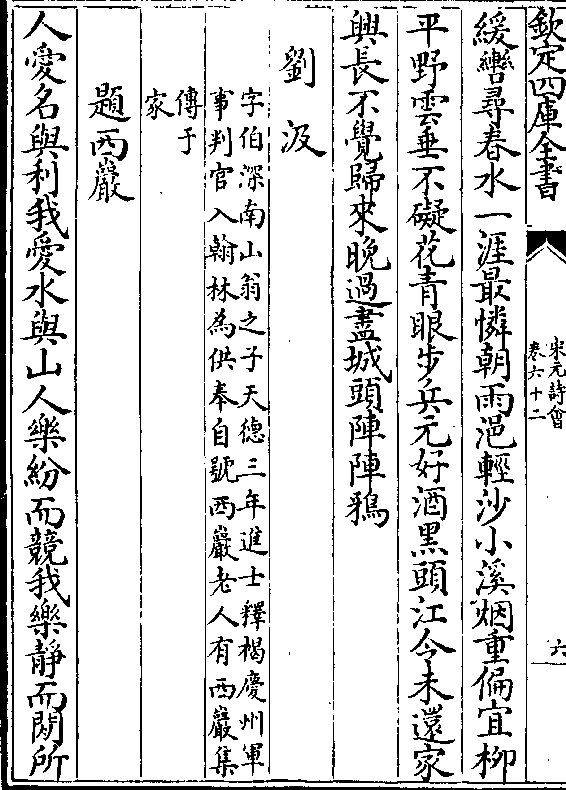 欽定四庫全書
宋元詩會
卷六十二
六
緩轡尋春水一涯最憐朝雨浥輕沙小溪烟重偏宜柳
平野雲垂不礙花青眼步兵元好酒黑頭江令未還家
興長不覺歸來晚過盡城頭陣陣鴉
劉汲
字伯深南山翁之子天德三年進士釋褐慶州軍
事判官入翰林為供奉自號西巖老人有西巖集
傳于
家
題西巖
人愛名與利我愛水與山人樂紛而競我樂靜而閑所